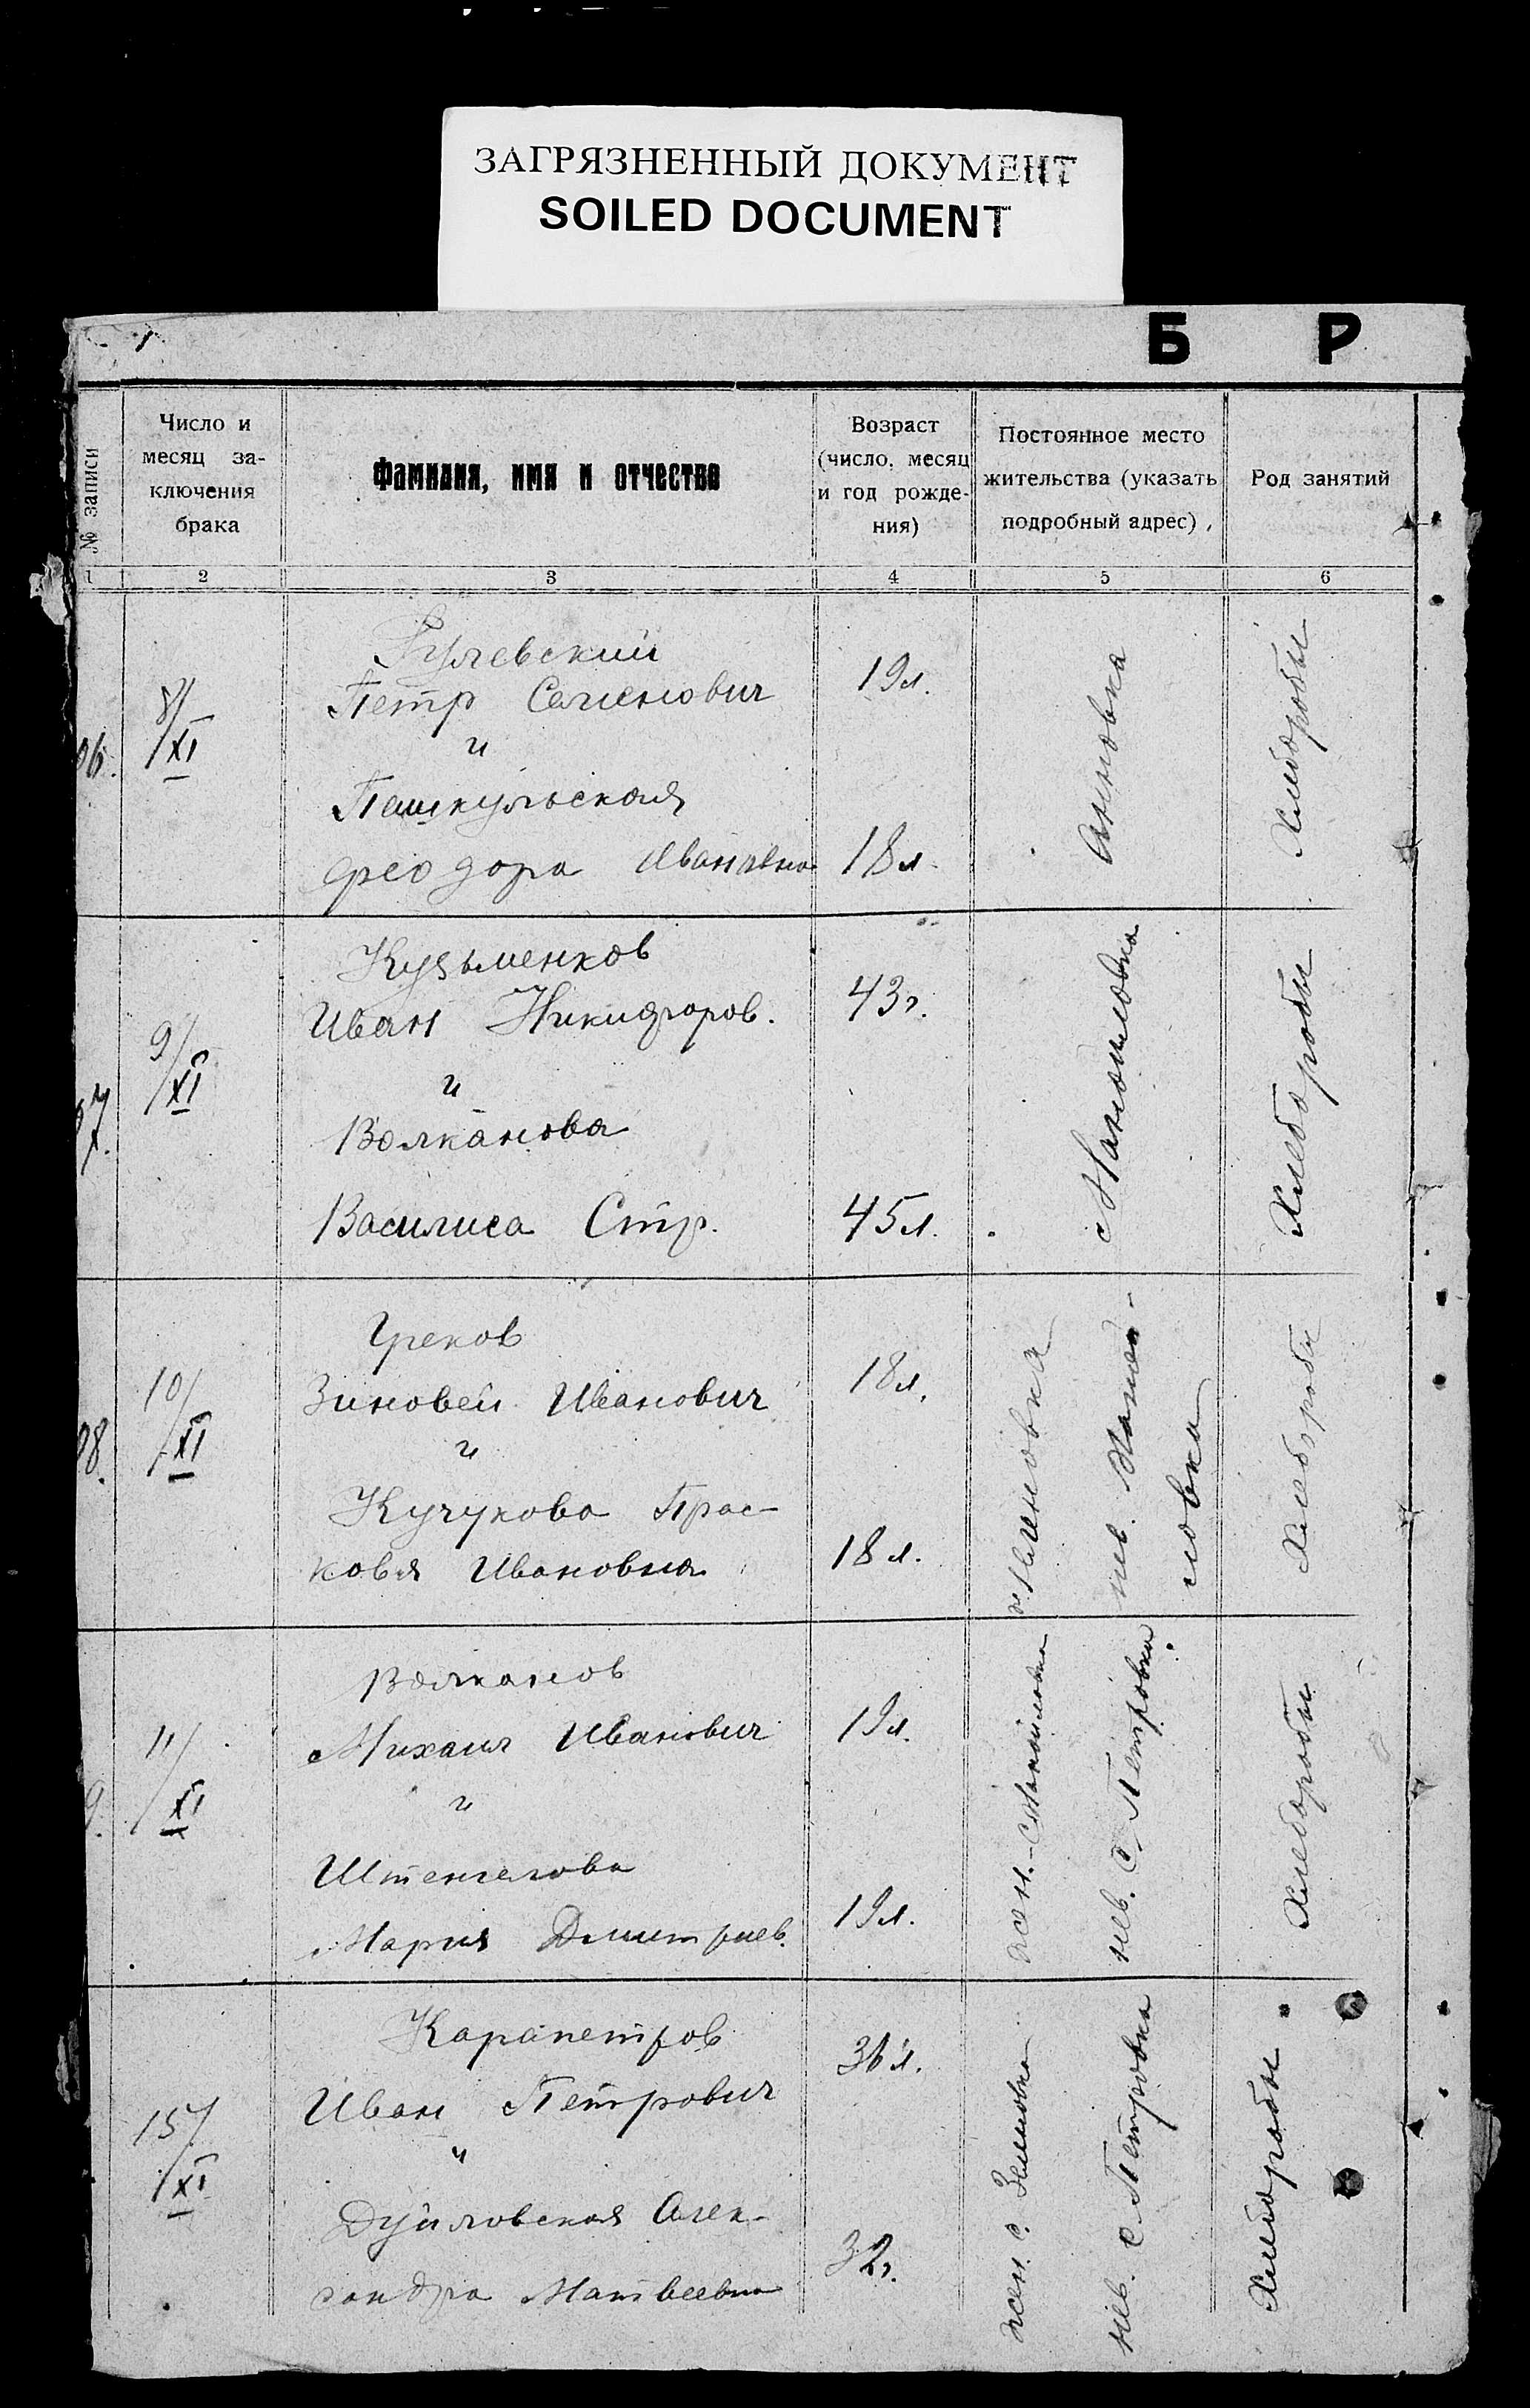 ЗАГРЯЗНЕННЫЙ ДОКУМЕНТ
SOILED DOCUMENT
Б Р
№ записи
Число и
месяц за-
ключения
брака
Фамилия, имя и отчество
Возраст
(число, месяц
и год рожде-
ния)
Постоянное место
жительства (указать
подробный адрес)
Род занятий
1 2 3 4 5 6
06.
8/XI
Гулевский
Петр Семенович
и
Пашкульская
Феодора Ивановна
19 л.
18 л.
Анновка
Хлеборобы
07.
9/XI
Кузьменков
Иван Никифоров.
и
Волканова
Василиса Стр.
43 г.
45 л.
Манойловка
Хлеборобы
08.
10/XI
Греков
Зиновей Иванович
и
Кучукова Прас-
ковья Ивановна
18 л.
18 л.
нев. Маной-
ловка
Хлеборобы
9.
11/XI
Волканов
Михаил Иванович
и
Штенгелова
Мария Дмитриев.
19 л.
19 л.
жен. с Манойловка
нев. с. Петровка
Хлеборобы
15/XI
Карапетров
Иван Петрович
и
Дуйловская Алек-
сандра Матвеевна
36 л.
32 г.
жен. с.
нев. с. Петровка
Хлеборобы